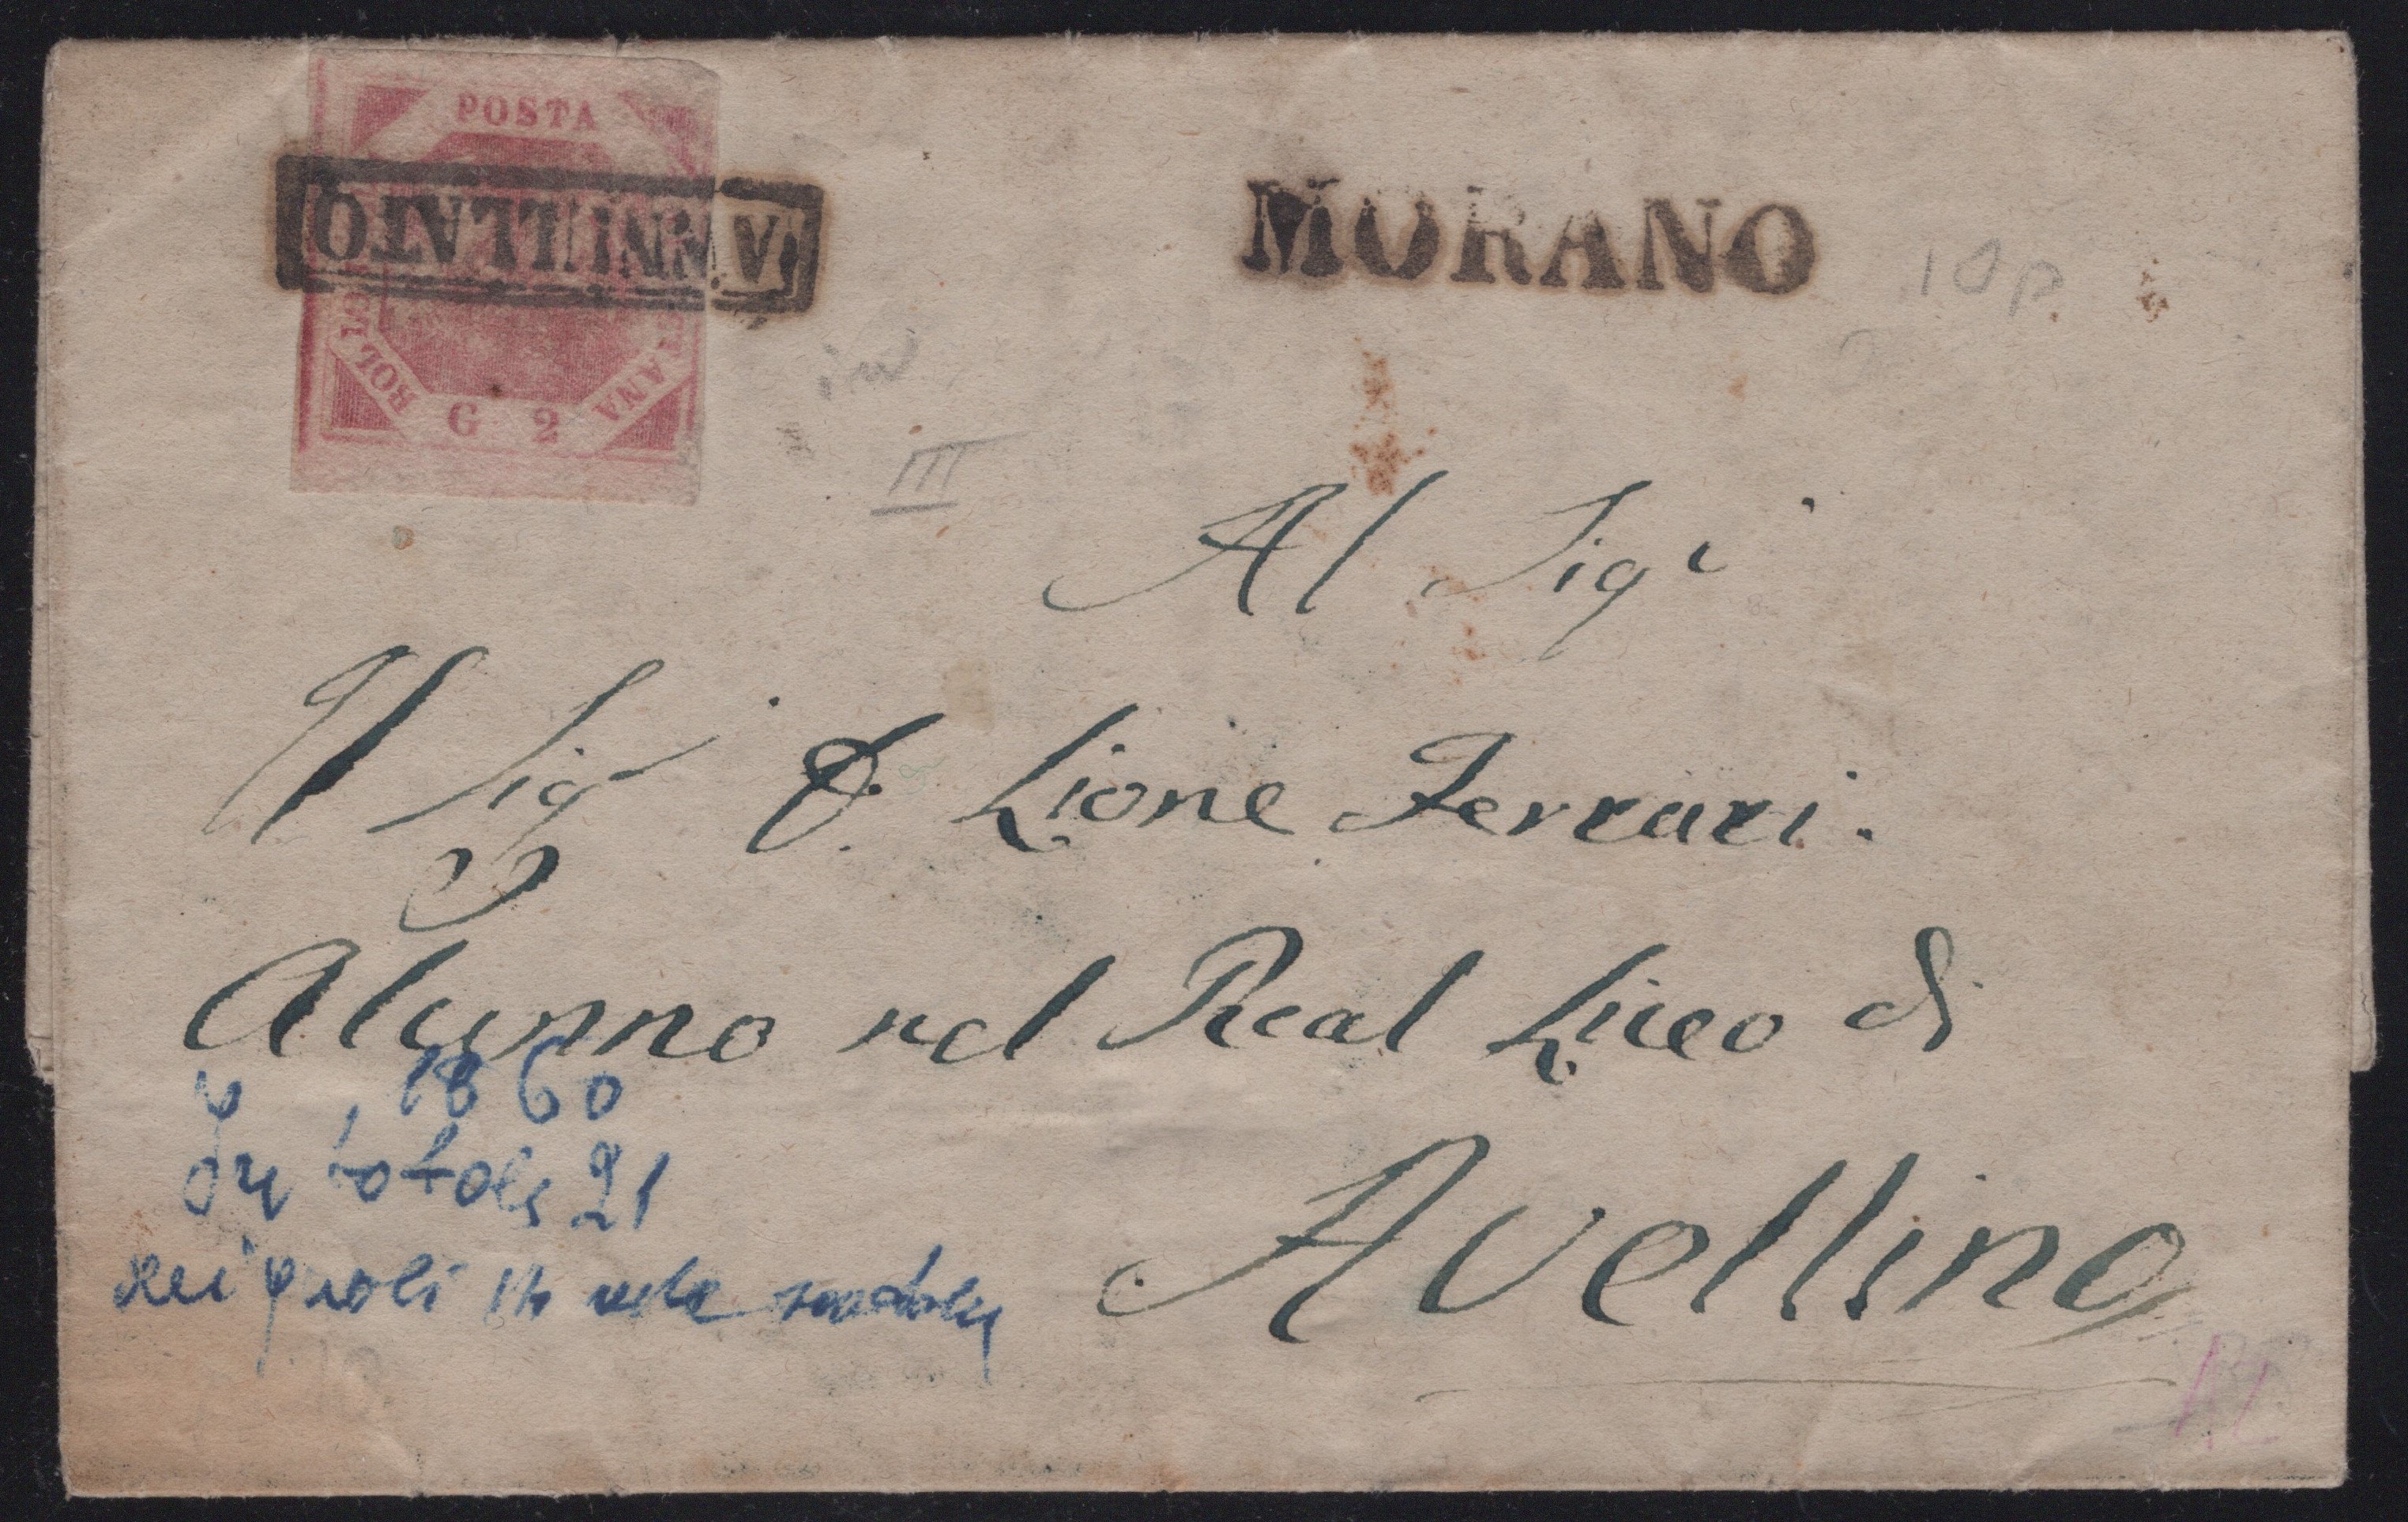 POSTA
BOLL
TANA
G 2
ANNULLATO
MORANO
10 p.
III
Al Sigr
Il Sigr D. Lione Ferrari.
Alunno nel Real Liceo di
Avellino
1860
21